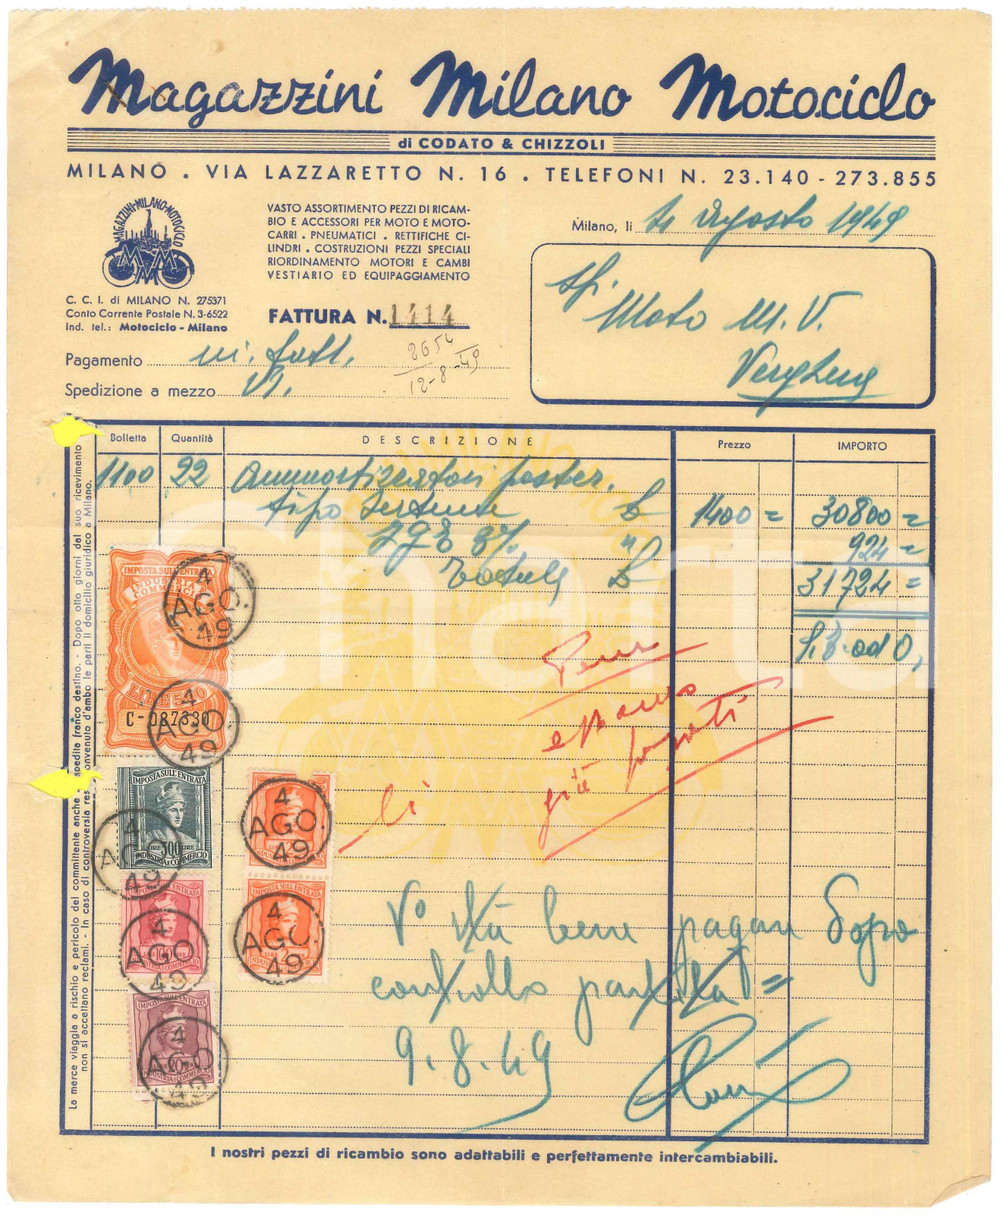 Magazzini Milano Motociclo
di CODATO & CHIZZOLI
MILANO . VIA LAZZARETTO N. 16 . TELEFONI N. 23.140 - 273.855
MAGAZZINI·MILANO·MOTOCICLO
MMM
VASTO ASSORTIMENTO PEZZI DI RICAM-
BIO E ACCESSORI PER MOTO E MOTO-
CARRI . PNEUMATICI . RETTIFICHE CI-
LINDRI . COSTRUZIONI PEZZI SPECIALI
RIORDINAMENTO MOTORI E CAMBI
VESTIARIO ED EQUIPAGGIAMENTO
Milano, li 4 Agosto 1949
C. C. I. di MILANO N. 275371
Conto Corrente Postale N. 3-6522
Ind. tel.: Motociclo - Milano
FATTURA N. 1414
Moto M. V.
Verghera
Pagamento
8654
12-8-49
Spedizione a mezzo
Bolletta Quantità DESCRIZIONE Prezzo IMPORTO
1100 22 Ammortizzatori poster.
tipo 1400 = 30800 =
IGE 3% 924 =
Totale 31724 =
IMPOSTA SULL'ENTRATA
INDUSTRIA E COMMERCIO
C-087330
4
AGO.
49
4
AGO.
49
IMPOSTA SULL'ENTRATA
LIRE 500 LIRE
INDUSTRIA E COMMERCIO
4
AGO.
49
4
AGO.
49
100
4
AGO.
49
4
AGO.
49
4
AGO
49
più
V° Sta bene pagare dopo
controllo partita =
9.8.49
La merce viaggia a rischio e pericolo del committente anche se spedita franco destino. - Dopo otto giorni dal suo ricevimento
non si accettano reclami. - In caso di controversia resta convenuto d'ambo le parti il domicilio giuridico a Milano.
I nostri pezzi di ricambio sono adattabili e perfettamente intercambiabili.
Charta